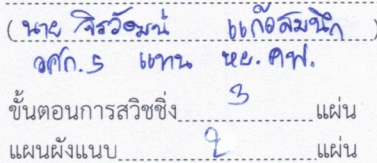 (นาย จิรวัฒน์ แก้วสมนึก)
วศก.5 แทน หย.คฟ.
ขั้นตอนการสวิชชิ่ง 3 แผ่น
แผนผังแนบ 2 แผ่น